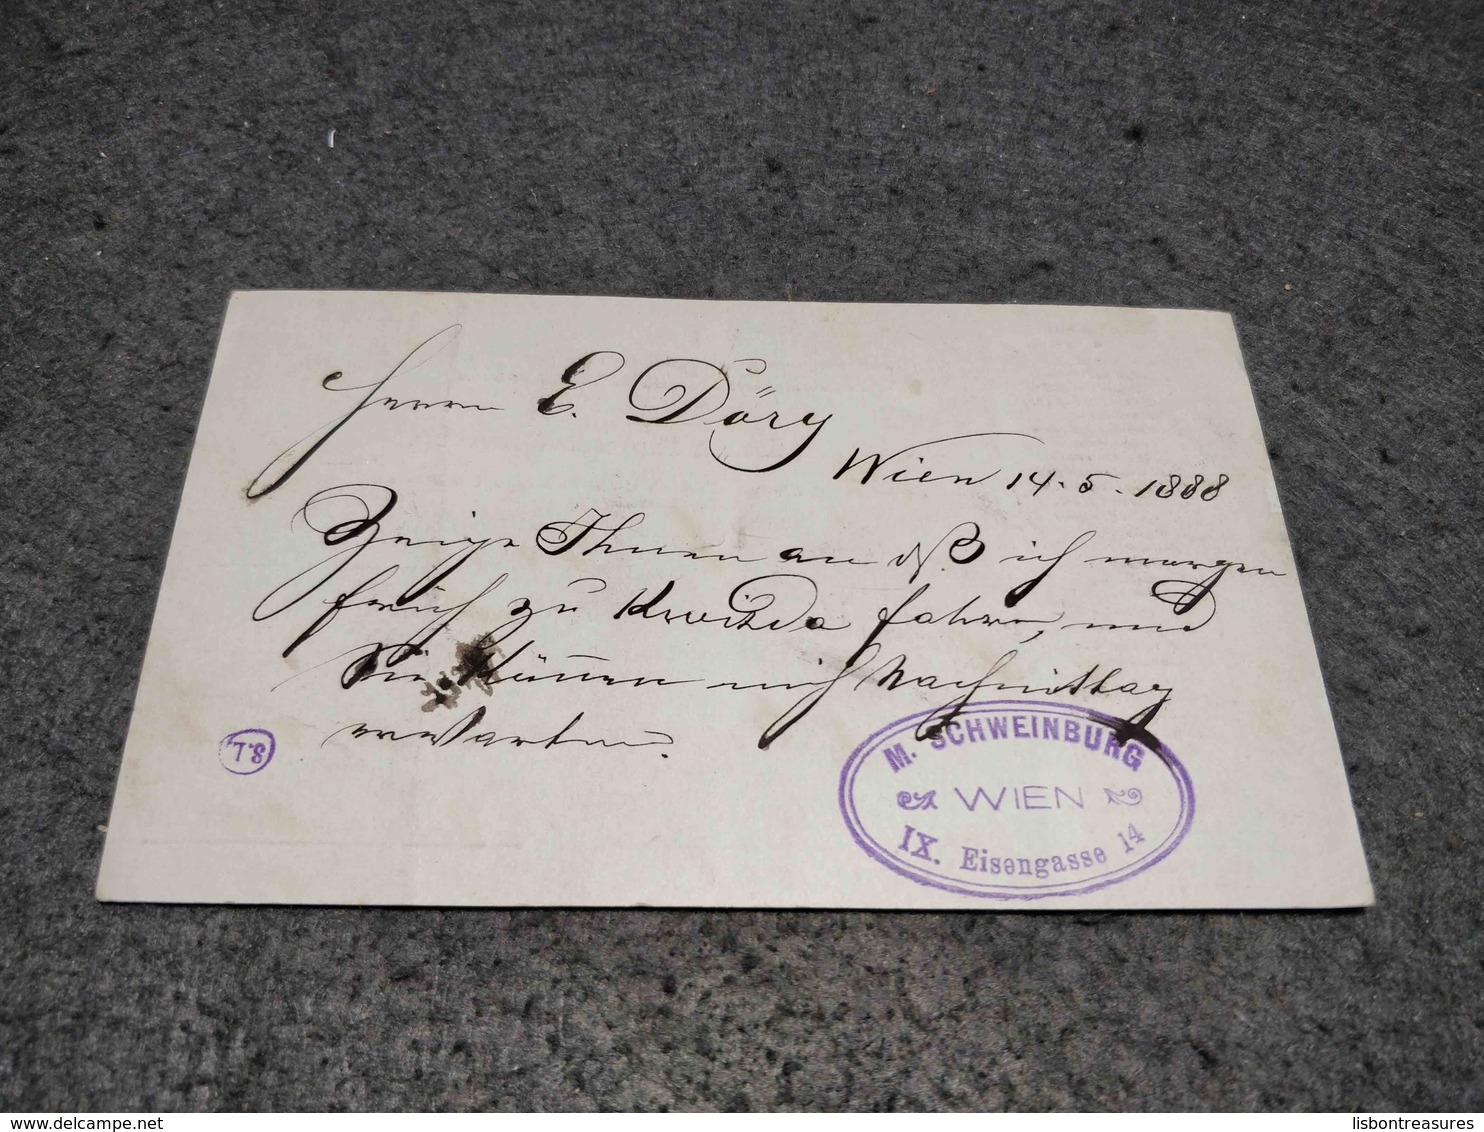 Herrn E. Döry
Wien 14.5.1888
Zeige Ihnen an dß ich morgen
früh zu fahre, und
Sie können mich Nachmittag
erwarten.
S.L.
M. SCHWEINBURG
WIEN
IX. Eisengasse 14
delcampe.net
lisbontreasures